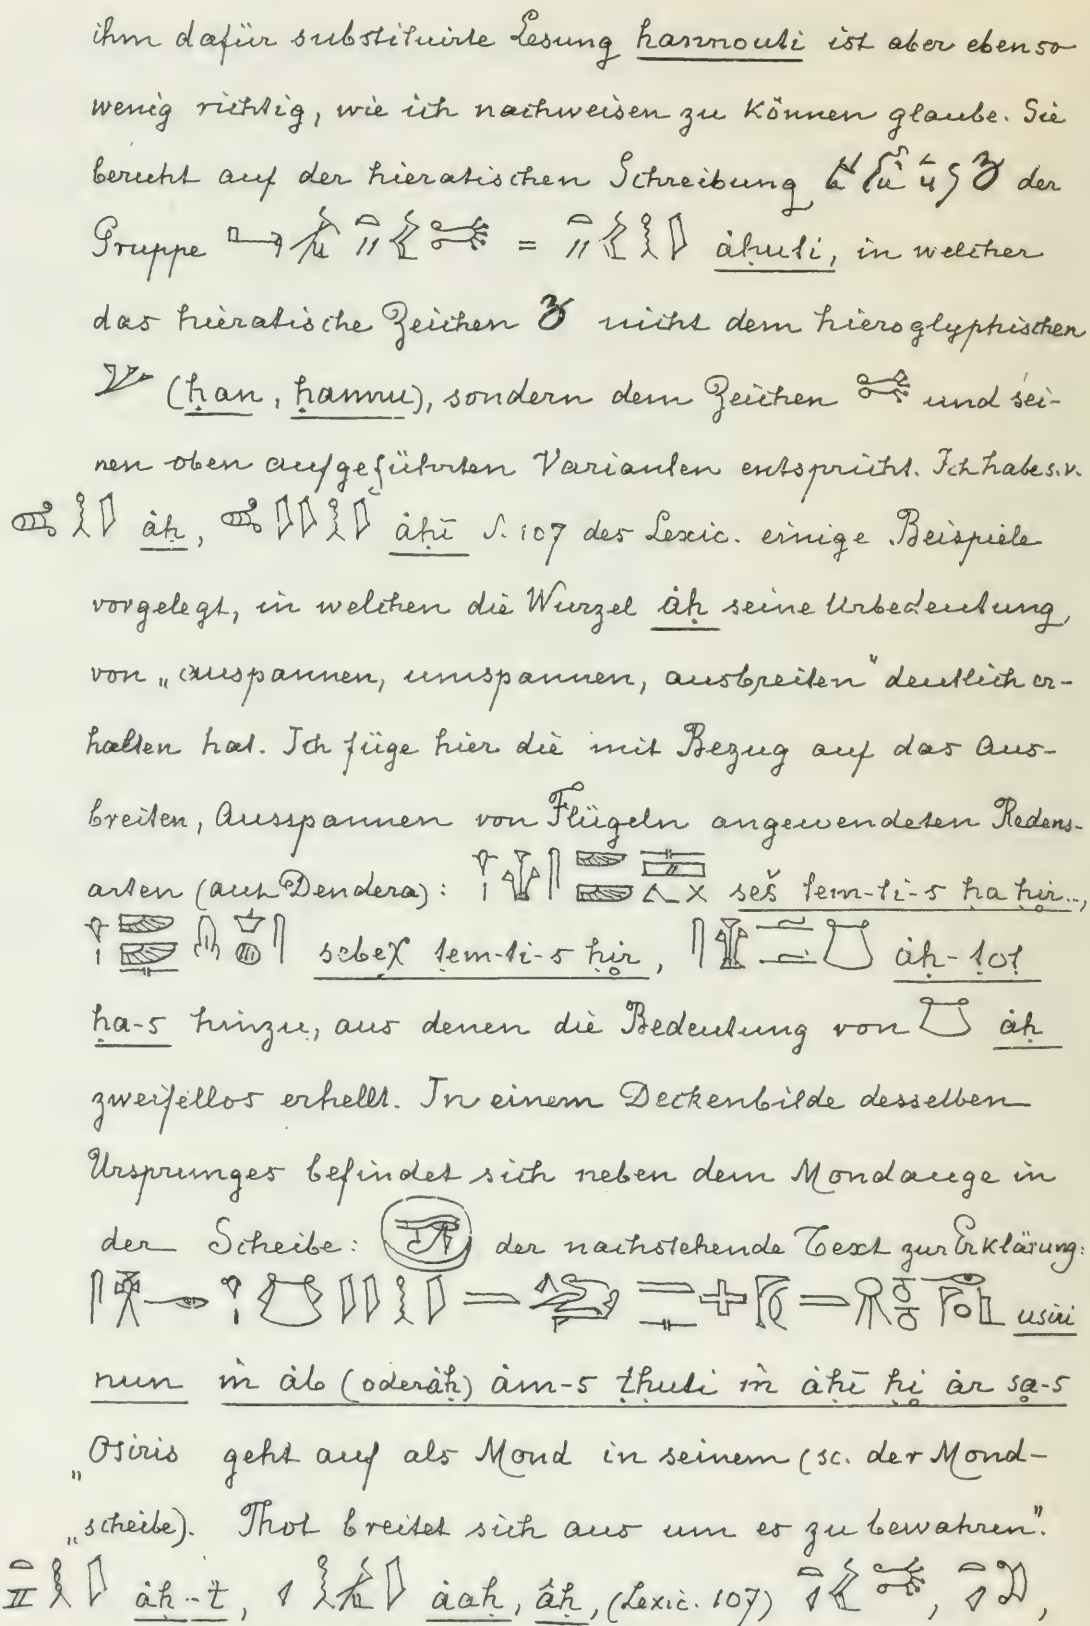 ihm dafür substituirte Lesung ḥannouti ist aber ebenso
wenig richtig, wie ich nachweisen zu können glaube. Sie
beruht auf der hieratischen Schreibung der
Gruppe = åḥuti, in welcher
das hieratische Zeichen nicht dem hieroglyphischen
(ḥan, ḥannu), sondern dem Zeichen und sei-
nen oben aufgeführten Varianten entspricht. Ich habe s.v.
åḥ, åḥī S. 107 des Lexic. einige Beispiele
vorgelegt, in welchen die Wurzel åḥ seine Urbedeutung
von „auspannen, umspannen, ausbreiten" deutlich er-
halten hat. Ich füge hier die mit Bezug auf das Aus-
breiten, Ausspannen von Flügeln angewendeten Redens-
arten (aus Dendera): seš tem-ti-s ḥa ḥir..,
sebeχ tem-ti-s ḥir, åḥ-tot
ḥa-s hinzu, aus denen die Bedeutung von åḥ
zweifellos erhellt. In einem Deckenbilde desselben
Ursprunges befindet sich neben dem Mondauge in
der Scheibe: der nachstehende Text zur Erklärung:
usiri
nun m åb (oder åḥ) åm-s tḥuti m åḥī ḥi år sa-s
„Osiris geht auf als Mond in seinem (sc. der Mond-
„scheibe). Thot breitet sich aus um es zu bewahren".
åḥ-t, åaḥ, âḥ, (Lexic. 107) , ,